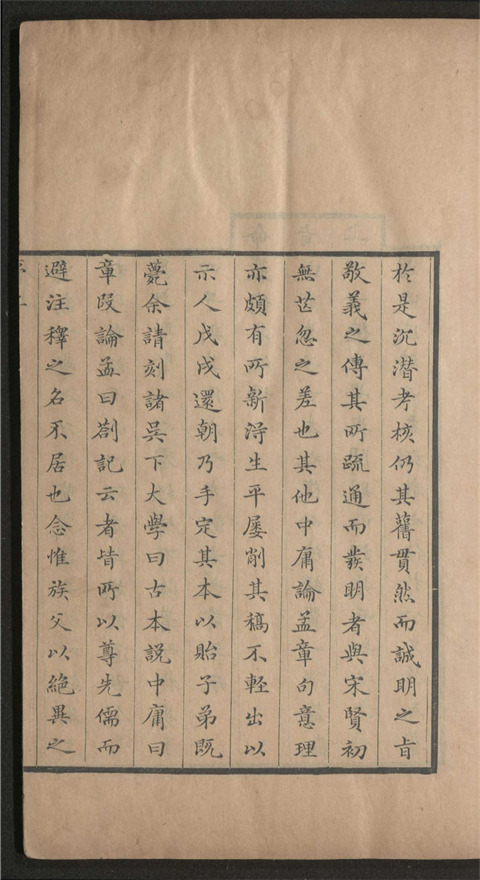 於是沉潛考核仍其舊貫然而誠明之㫖
敬義之傳其所疏通而發明者與宋賢初
無芒忽之差也其他中庸論孟章句意理
亦頗有所新淂生平屡削其稿不輊出以
示人戊戌還朝乃手定其本以貽子弟既
薨余請刻諸吳下大學曰古本說中庸曰
章段論孟曰劄記云者皆所以尊先儒而
避注釋之名不居也念惟族父以絶異之